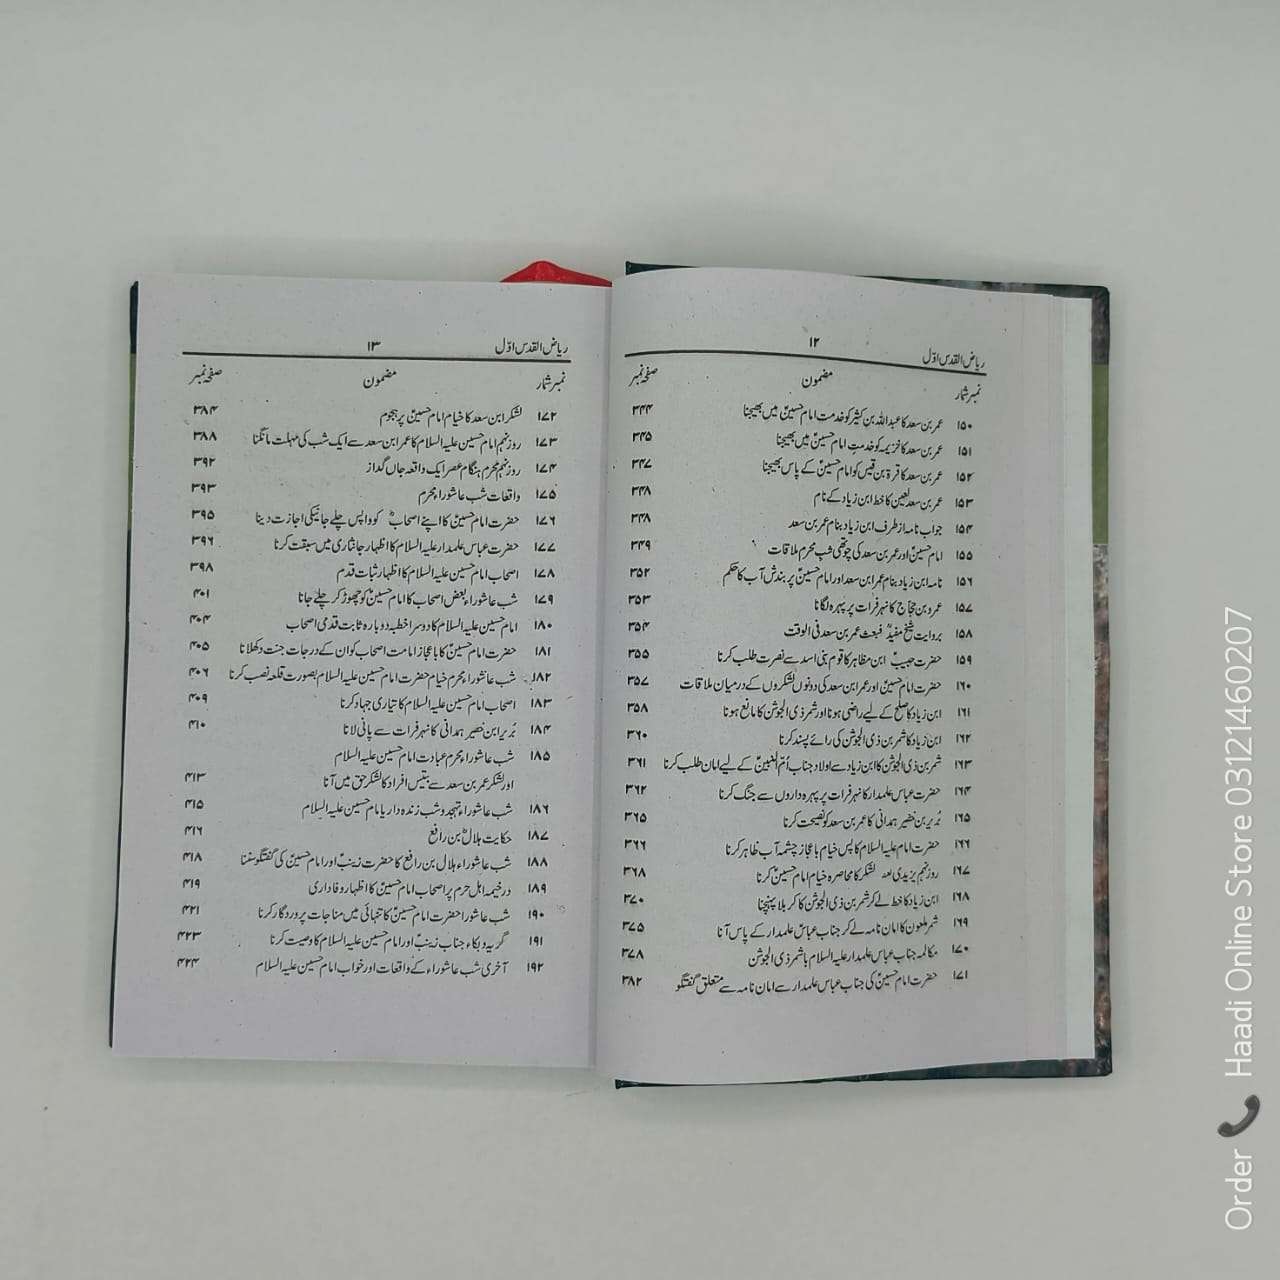 ریاض القدس اوّل ۱۲
نمبر شمار مضمون صفحہ نمبر
۱۵۰ عمر بن سعد کا عبداللہ بن کثیر کو خدمت امام حسینؑ میں بھیجنا ۳۴۴
۱۵۱ عمر بن سعد کا خزیمہ کو خدمتِ امام حسینؑ میں بھیجنا ۳۴۵
۱۵۲ عمر بن سعد کا قرۃ بن قیس کو امام حسینؑ کے پاس بھیجنا ۳۴۷
۱۵۳ عمر بن سعد لعین کا خط ابن زیاد کے نام ۳۴۸
۱۵۴ جواب نامہ از طرف ابن زیاد بنام عمر بن سعد ۳۴۸
۱۵۵ امام حسینؑ اور عمر بن سعد کی چوتھی شب محرم ملاقات ۳۴۹
۱۵۶ نامہ ابن زیاد بنام عمر ابن سعد اور امام حسینؑ پر بندش آب کا حکم ۳۵۲
۱۵۷ عمرو بن حجاج کا نہر فرات پر پہرہ لگانا ۳۵۳
۱۵۸ بروایت شیخ مفیدؒ فبعث عمر بن سعد فی الوقت ۳۵۴
۱۵۹ حضرت حبیبؑ ابن مظاہر کا قوم بنی اسد سے نصرت طلب کرنا ۳۵۵
۱۶۰ حضرت امام حسینؑ اور عمر ابن سعد کی دونوں لشکروں کے درمیان ملاقات ۳۵۷
۱۶۱ ابن زیاد کا صلح کے لیے راضی ہونا اور شمر ذی الجوشن کا مانع ہونا ۳۵۸
۱۶۲ ابن زیاد کا شمر بن ذی الجوشن کی رائے پسند کرنا ۳۶۰
۱۶۳ شمر بن ذی الجوشن کا ابن زیاد سے اولاد جناب اُم البنینؑ کے لیے امان طلب کرنا ۳۶۱
۱۶۴ حضرت عباس علمدار کا نہر فرات پر پہرہ داروں سے جنگ کرنا ۳۶۲
۱۶۵ بُریر بن خضیر ہمدانی کا عمر بن سعد کو نصیحت کرنا ۳۶۵
۱۶۶ حضرت امام علیہ السلام کا پس خیام باعجاز چشمہ آب ظاہر کرنا ۳۶۶
۱۶۷ روز نہم یزیدی لشکر کا محاصرہ خیام امام حسینؑ کرنا ۳۶۸
۱۶۸ ابن زیاد کا خط لے کر شمر بن ذی الجوشن کا کربلا پہنچنا ۳۷۰
۱۶۹ شمر ملعون کا امان نامہ لے کر جناب عباس علمدار کے پاس آنا ۳۷۵
۱۷۰ مکالمہ جناب عباس علمدار علیہ السلام با شمر ذی الجوشن ۳۷۸
۱۷۱ حضرت امام حسینؑ کی جناب عباس علمدار سے امان نامہ سے متعلق گفتگو ۳۸۲
ریاض القدس اوّل ۱۳
نمبر شمار مضمون صفحہ نمبر
۱۷۲ لشکر ابن سعد کا خیام امام حسینؑ پر ہجوم ۳۸۴
۱۷۳ روز نہم امام حسین علیہ السلام کا عمر ابن سعد سے ایک شب کی مہلت مانگنا ۳۸۸
۱۷۴ روز نہم محرم ہنگام عصر ایک واقعہ جاں گداز ۳۹۲
۱۷۵ واقعات شب عاشوراء محرم ۳۹۳
۱۷۶ حضرت امام حسینؑ کا اپنے اصحابؓ کو واپس چلے جانیکی اجازت دینا ۳۹۵
۱۷۷ حضرت عباس علمدار علیہ السلام کا اظہار جانثاری میں سبقت کرنا ۳۹۶
۱۷۸ اصحاب امام حسین علیہ السلام کا اظہار ثبات قدم ۳۹۸
۱۷۹ شب عاشوراء بعض اصحاب کا امام حسینؑ کو چھوڑ کر چلے جانا ۴۰۱
۱۸۰ امام حسین علیہ السلام کا دوسرا خطبہ دوبارہ ثابت قدمی اصحاب ۴۰۴
۱۸۱ حضرت امام حسینؑ کا باعجاز امامت اصحاب کو ان کے درجات جنت دکھلانا ۴۰۵
۱۸۲ شب عاشوراء محرم خیام حضرت امام حسین علیہ السلام بصورت قلعہ نصب کرنا ۴۰۶
۱۸۳ اصحاب امام حسین علیہ السلام کا تیاری جہاد کرنا ۴۰۹
۱۸۴ بُریر ابن خضیر ہمدانی کا نہر فرات سے پانی لانا ۴۱۰
۱۸۵ شب عاشوراء محرم عبادت امام حسین علیہ السلام
اور لشکر عمر بن سعد سے بتیس افراد کا لشکر حق میں آنا ۴۱۳
۱۸۶ شب عاشوراء تہجد و شب زندہ داریا امام حسین علیہ السلام ۴۱۵
۱۸۷ حکایت ہلال بن رافع ۴۱۶
۱۸۸ شب عاشوراء ہلال بن رافع کا حضرت زینبؑ اور امام حسینؑ کی گفتگو سننا ۴۱۸
۱۸۹ در خیمہ اہل حرم پر اصحاب امام حسینؑ کا اظہار وفاداری ۴۱۹
۱۹۰ شب عاشورا حضرت امام حسینؑ کا تنہائی میں مناجات پروردگار کرنا ۴۲۱
۱۹۱ گریہ و بکاء جناب زینبؑ اور امام حسین علیہ السلام کا وصیت کرنا ۴۲۳
۱۹۲ آخری شب عاشوراء کے واقعات اور خواب امام حسین علیہ السلام ۴۲۴
Order 📞 Haadi Online Store 03121460207